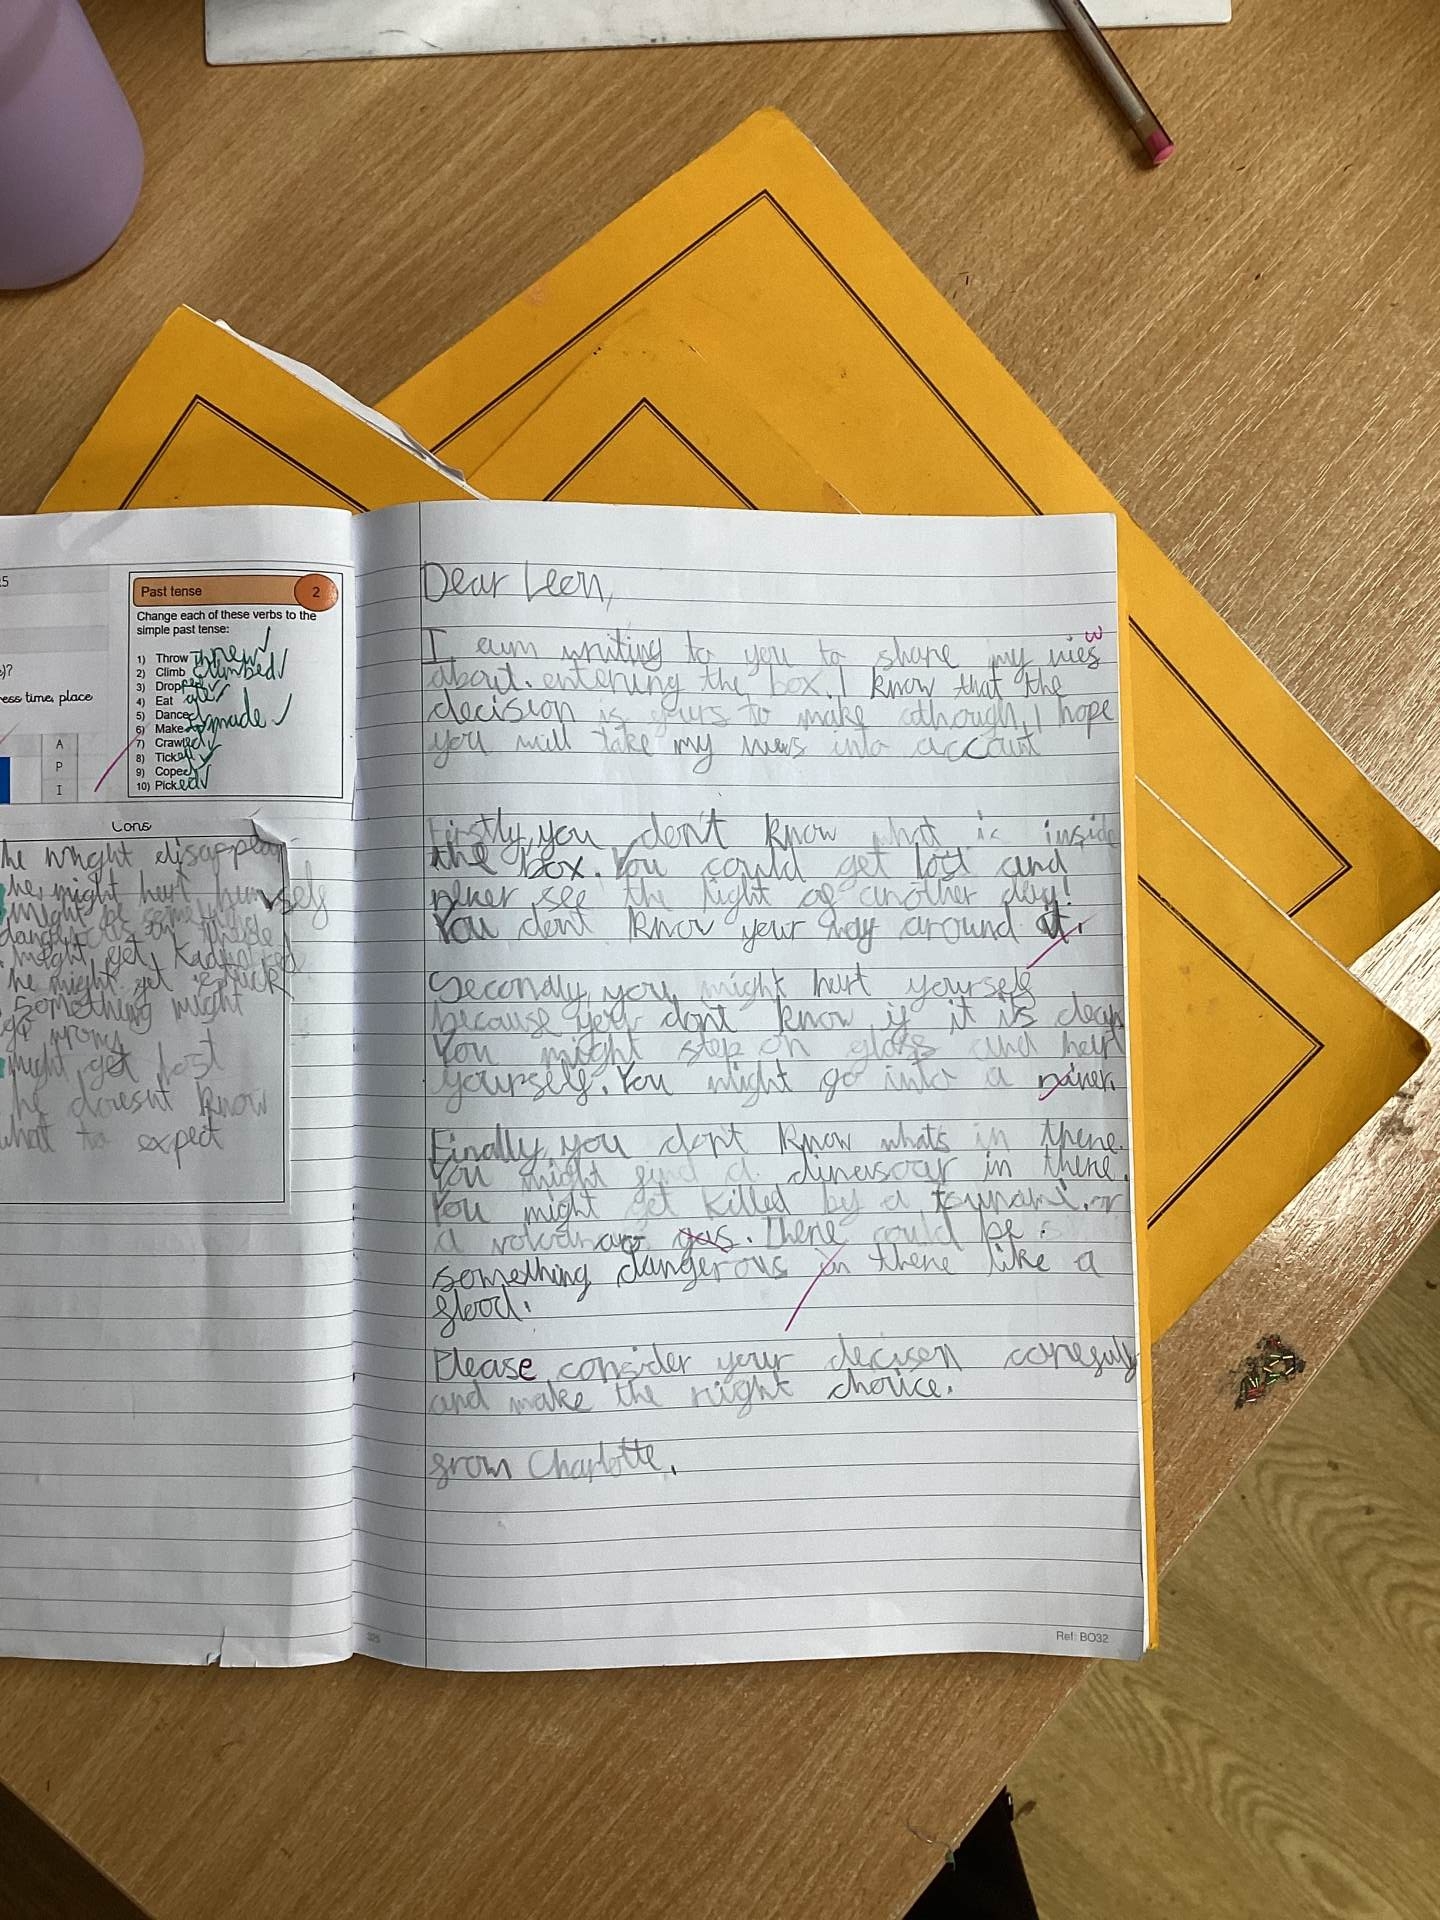 :5
)?
ess time, place
A
P
I
Past tense 2
Change each of these verbs to the
simple past tense:
1) Throw Threw
2) Climb climbed
3) Dropped
4) Eat ate
5) Danced
6) Make made
7) Crawled
8) Ticked
9) Coped
10) Picked
Cons
he might disappear
he might hurt himself
might be something
dangerous on inside
might get Kadnapted
he might get stuck
something might
go wrong
might get lost
he doesnt know
what to expect
Dear Leon,
I am writing to you to share my views
about. entering the box. I know that the
decision is yours to make although, I hope
you will take my views into account
Firstly, you don't know what is inside
the box. You could get lost and
never see the light of another day!
You dont know your way around it.
Secondly, you might hurt yourself
because you dont know if it is clean
You might step on glass and hurt
yourself. You might go into a river.
Finally, you don't know whats in there.
You might find a dinusour in there.
You might get killed by a tsunami. or
a There could be
something dangerous in there like a
flood.
Please consider your decison carefuly
and make the right choice.
from Charlotte.
325
Ref: BO32